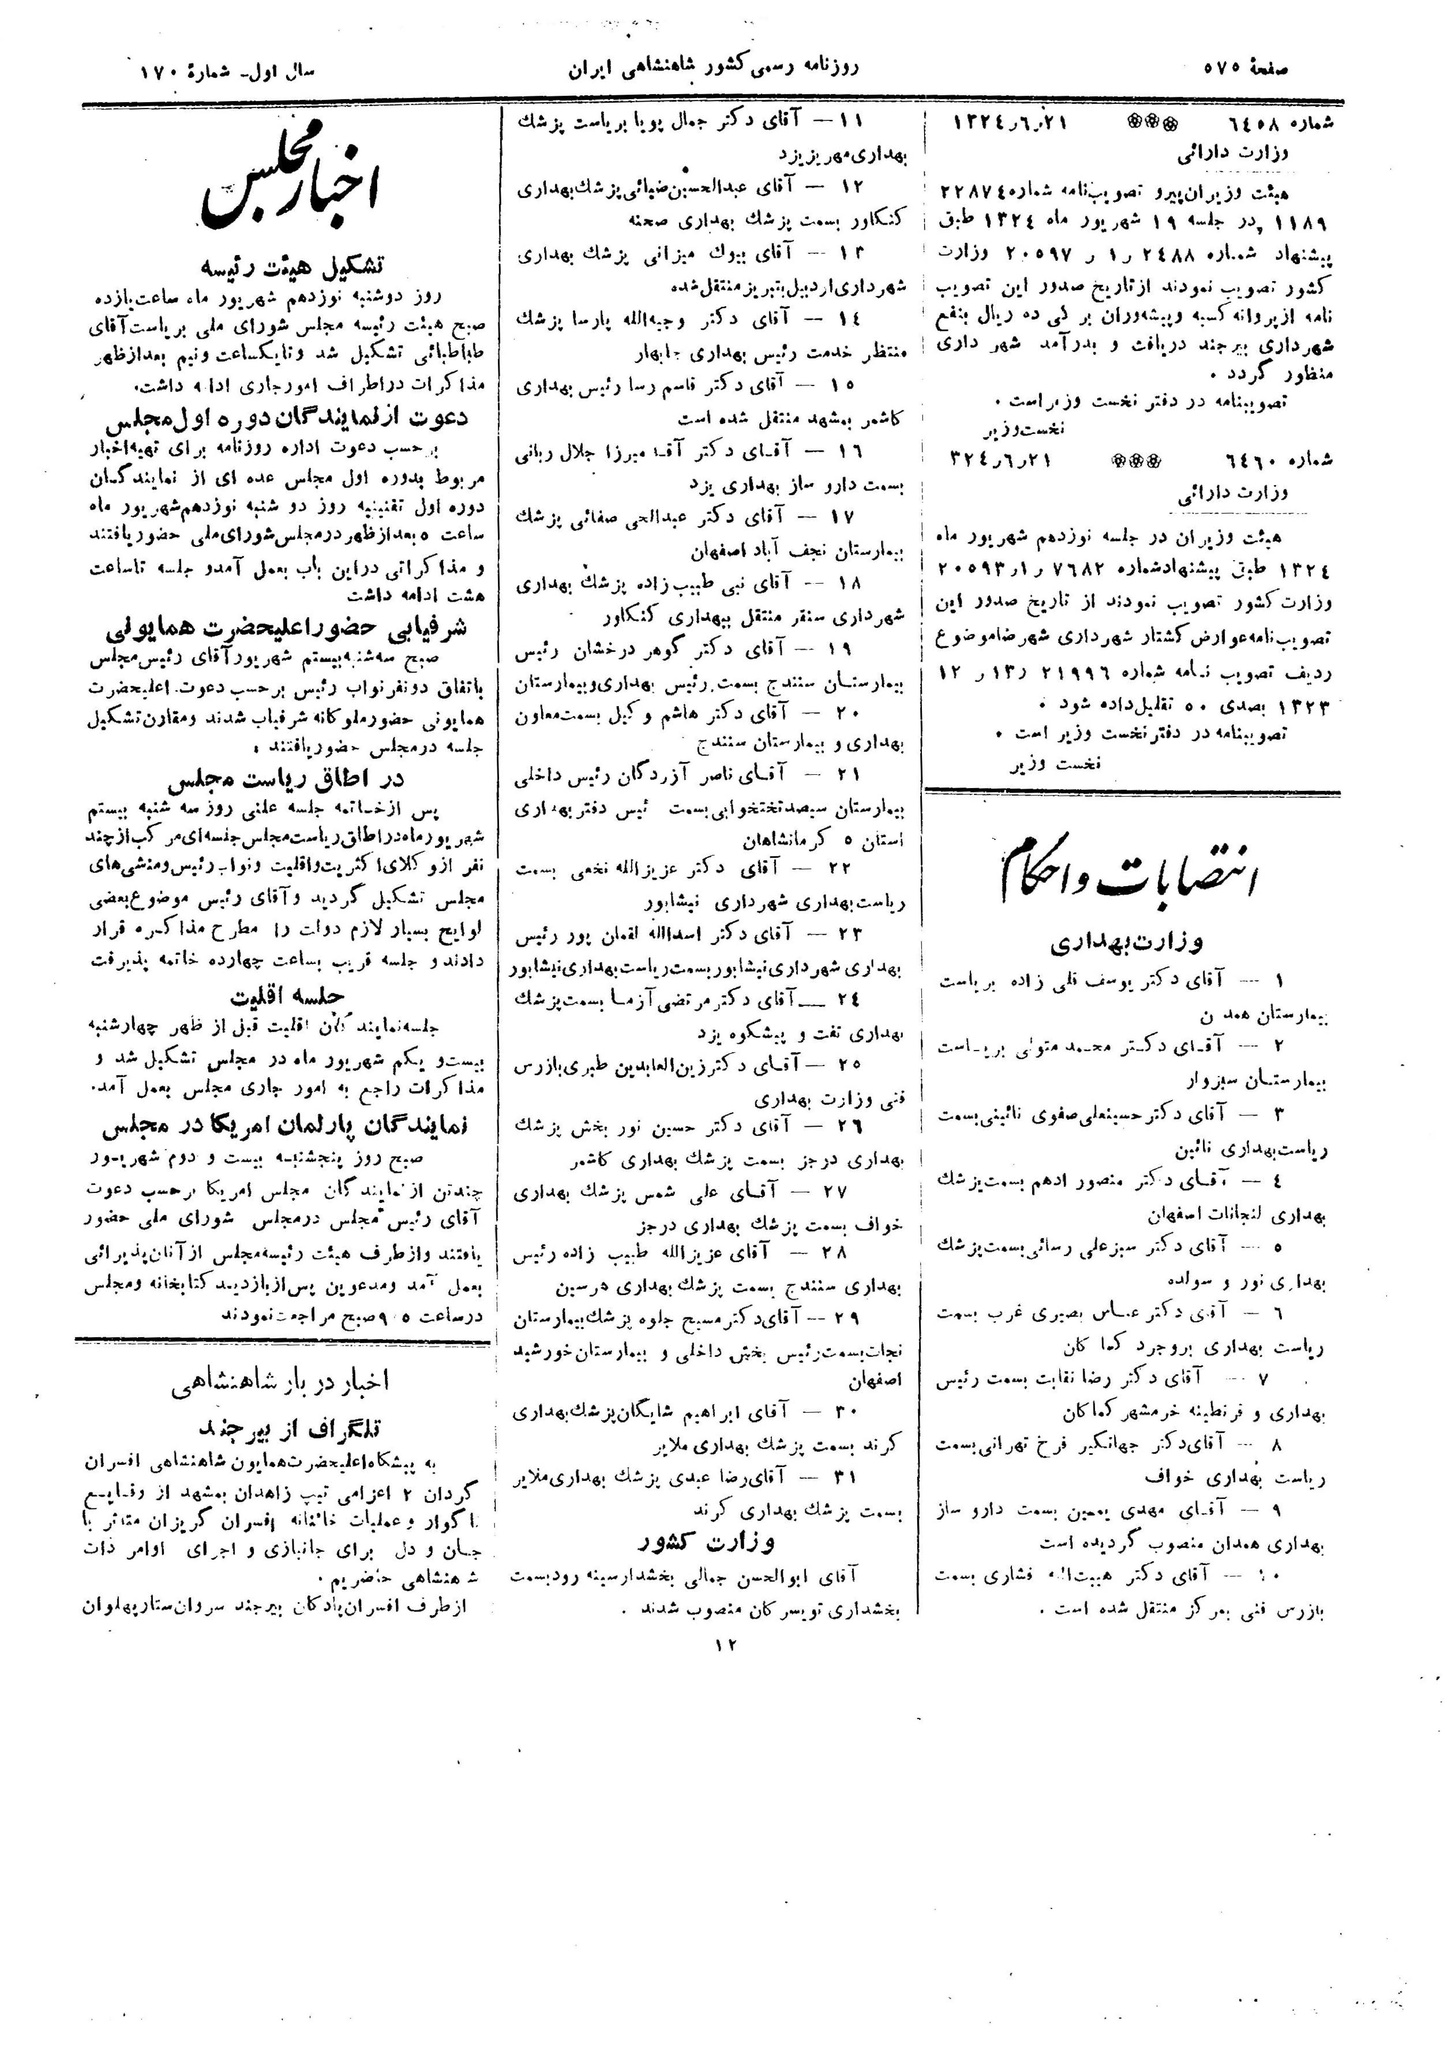 صفحهٔ ۵۷۵
روزنامه رسمی کشور شاهنشاهی ایران
سال اول- شمارهٔ ۱۷۰
شماره ۶۴۵۸ ۲۱ر۶ر۱۳۲۴
وزارت دارائی
هیئت وزیران پیرو تصویب‌نامه شماره ۲۲۸۷۴
۱۱۸۹ در جلسه ۱۹ شهریور ماه ۱۳۲۴ طبق
پیشنهاد شماره ۲۴۸۸ر۱ ر ۲۰۵۹۷ وزارت
کشور تصویب نمودند از تاریخ صدور این تصویب
نامه از پروانه کسبه و پیشه‌وران بر گی ده ریال بنفع
شهرداری بیرجند دریافت و بدرآمد شهر داری
منظور گردد .
تصویبنامه در دفتر نخست وزیر است .
نخست‌وزیر
شماره ۶۴۶۰ ۲۱ر۶ر۳۲۴
وزارت دارائی
هیئت وزیران در جلسه نوزدهم شهریور ماه
۱۳۲۴ طبق پیشنهاد شماره ۷۶۸۲ ر۱ر ۲۰۵۹۳
وزارت کشور تصویب نمودند از تاریخ صدور این
تصویب‌نامه عوارض کشتار شهرداری شهرضا موضوع
ردیف تصویب نامه شماره ۲۱۹۹۶ ر۱۳ ر ۱۲
۱۳۲۳ بصدی ۵۰ تقلیل داده شود .
تصویبنامه در دفتر نخست وزیر است .
نخست وزیر
انتصابات و احکام
وزارت بهداری
۱ — آقای دکتر یوسف قلی زاده بریاست
بیمارستان همدن
۲ — آقای دکتر محمد متولی بریاست
بیمارستان سبزوار
۳ — آقای دکتر حسینعلی صفوی نائینی بسمت
ریاست بهداری نائین
۴ — آقای دکتر منصور ادهم بسمت پزشك
بهداری لنجانات اصفهان
۵ — آقای دکتر سبزعلی رسائی بسمت پزشك
بهداری نور و سولده
۶ — آقای دکتر عباس بصیری غرب بسمت
ریاست بهداری بروجرد کما کان
۷ — آقای دکتر رضا نقابت بسمت رئیس
بهداری و قرنطینه خرمشهر کماکان
۸ — آقای دکتر جهانگیر فرخ تهرانی بسمت
ریاست بهداری خواف
۹ — آقای مهدی یمین بسمت دارو ساز
بهداری همدان منصوب گردیده است
۱۰ — آقای دکتر هیبت‌اله فشاری بسمت
بازرس فنی بمرکز منتقل شده است .
۱۱ — آقای دکتر جمال پویا بریاست پزشك
بهداری مهریز یزد
۱۲ — آقای عبدالحسین ضیائی پزشك بهداری
کنگاور بسمت پزشك بهداری صحنه
۱۳ — آقای بیوك میزانی پزشك بهداری
شهرداری اردبیل بتبریز منتقل شده
۱۴ — آقای دکتر وجیه‌الله پارسا پزشك
منتظر خدمت رئیس بهداری چابهار
۱۵ — آقای دکتر قاسم رسا رئیس بهداری
کاشمر بمشهد منتقل شده است
۱۶ — آقای دکتر آقا میرزا جلال ربانی
بسمت دارو ساز بهداری یزد
۱۷ — آقای دکتر عبدالحی صفائی پزشك
بیمارستان نجف آباد اصفهان
۱۸ — آقای نبی طبیب زاده پزشك بهداری
شهرداری سنقر منتقل ببهداری کنگاور
۱۹ — آقای دکتر گوهر درخشان رئیس
بیمارستان سنندج بسمت رئیس بهداری و بیمارستان
۲۰ — آقای دکتر هاشم وکیل بسمت معاون
بهداری و بیمارستان سنندج
۲۱ — آقای ناصر آزردگان رئیس داخلی
بیمارستان سیصد تختخوابی بسمت ئیس دفتر بهداری
استان ۵ کرمانشاهان
۲۲ — آقای دکتر عزیزالله نخعی بسمت
ریاست بهداری شهرداری نیشابور
۲۳ — آقای دکتر اسدالله لقمان پور رئیس
بهداری شهرداری نیشابور بسمت ریاست بهداری نیشابور
۲۴ — آقای دکتر مرتضی آزما بسمت پزشك
بهداری تفت و پیشکوه یزد
۲۵ — آقای دکتر زین‌العابدین طبری بازرس
فنی وزارت بهداری
۲۶ — آقای دکتر حسین نور بخش پزشك
بهداری درجز بسمت پزشك بهداری کاشمر
۲۷ — آقای علی شمس پزشك بهداری
خواف بسمت پزشك بهداری درجز
۲۸ — آقای عزیزالله طبیب زاده رئیس
بهداری سنندج بسمت پزشك بهداری هرسین
۲۹ — آقای دکتر مسیح جلوه پزشك بیمارستان
نجات بسمت رئیس بخش داخلی و بیمارستان خورشید
اصفهان
۳۰ — آقای ابراهیم شایگان پزشك بهداری
کرند بسمت پزشك بهداری ملایر
۳۱ — آقای رضا عبدی پزشك بهداری ملایر
بسمت پزشك بهداری کرند
وزارت کشور
آقای ابوالحسن جمالی بخشدار سینه رود بسمت
بخشداری تویسرکان منصوب شدند .
اخبار مجلس
تشکیل هیئت رئیسه
روز دوشنبه نوزدهم شهریور ماه ساعت یازده
صبح هیئت رئیسه مجلس شورای ملی بریاست آقای
طباطبائی تشکیل شد و تا یکساعت و نیم بعد از ظهر
مذاکرات در اطراف امور جاری ادامه داشت.
دعوت از نمایندگان دوره اول مجلس
بر حسب دعوت اداره روزنامه برای تهیه اخبار
مربوط بدوره اول مجلس عده ای از نمایندگان
دوره اول تقنینیه روز دو شنبه نوزدهم شهریور ماه
ساعت ۵ بعد از ظهر در مجلس شورای ملی حضور یافتند
و مذاکراتی در این باب بعمل آمد و جلسه تا ساعت
هشت ادامه داشت
شرفیابی حضور اعلیحضرت همایونی
صبح سه‌شنبه بیستم شهریور آقای رئیس مجلس
باتفاق دو نفر نواب رئیس بر حسب دعوت اعلیحضرت
همایونی حضور ملوکانه شرفیاب شدند و مقارن تشکیل
جلسه در مجلس حضور یافتند .
در اطاق ریاست مجلس
پس از خاتمه جلسه علنی روز سه شنبه بیستم
شهریور ماه در اطاق ریاست مجلس جلسه‌ای مرکب از چند
نفر از وکلای اکثریت و اقلیت و نواب رئیس و منشی‌های
مجلس تشکیل گردید و آقای رئیس موضوع بعضی
لوایح بسیار لازم دولت را مطرح مذاکره قرار
دادند و جلسه قریب بساعت چهارده خاتمه پذیرفت
جلسه اقلیت
جلسه نمایندگان اقلیت قبل از ظهر چهارشنبه
بیست و یکم شهریور ماه در مجلس تشکیل شد و
مذاکرات راجع به امور جاری مجلس بعمل آمد.
نمایندگان پارلمان امریکا در مجلس
صبح روز پنجشنبه بیست و دوم شهریور
چندتن از نمایندگان مجلس امریکا برحسب دعوت
آقای رئیس مجلس در مجلس شورای ملی حضور
یافتند و از طرف هیئت رئیسه مجلس از آنان پذیرائی
بعمل آمد ومدعوین پس از بازدید کتابخانه و مجلس
در ساعت ۹٫۵ صبح مراجعت نمودند
اخبار دربار شاهنشاهی
تلگراف از بیرجند
به پیشگاه اعلیحضرت همایون شاهنشاهی افسران
گردان ۲ اعزامی تیپ زاهدان بمشهد از وقایع
ناگوار و عملیات خائنانه افسران گریزان متأثر با
جان و دل برای جانبازی و اجرای اوامر ذات
شاهنشاهی حاضریم .
از طرف افسران پادگان بیرجند سروان ستار پهلوان
۱۲